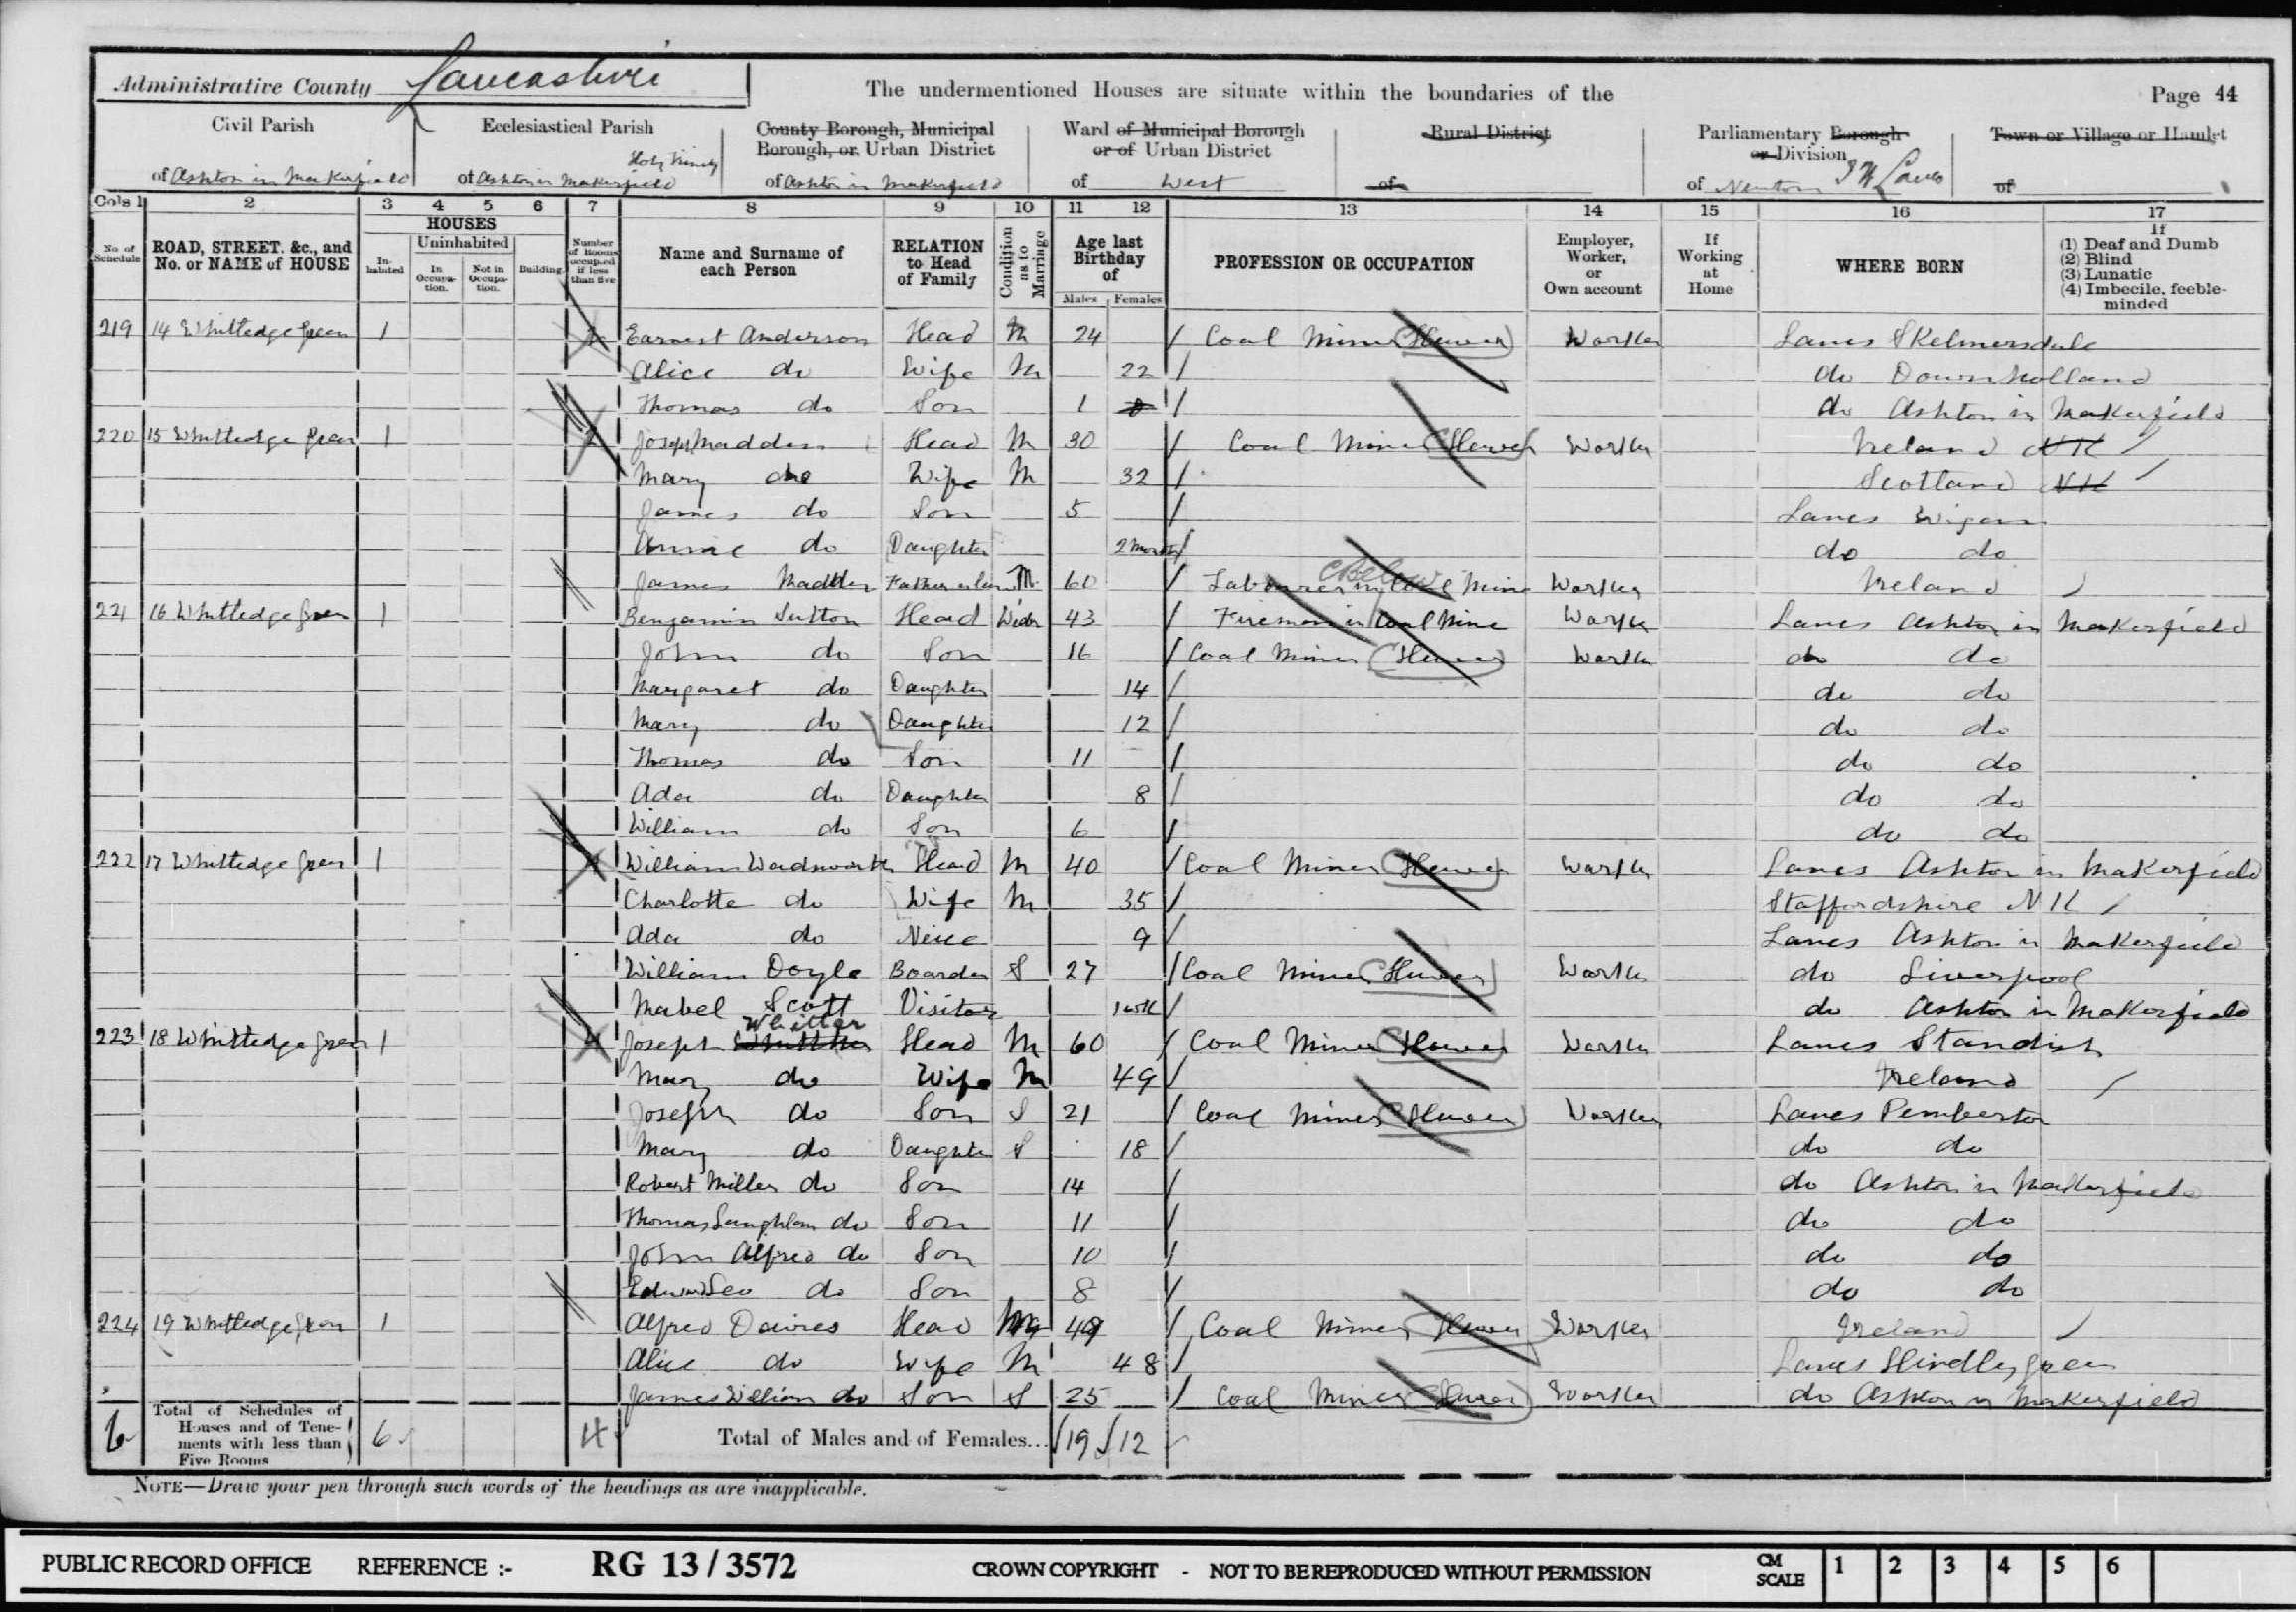 Administrative County Lancashire
The undermentioned Houses are situate within the boundaries of the
Page 44
Civil Parish of Ashton in Makerfield
Ecclesiastical Parish of Holy Trinity Ashton in Makerfield
County Borough, Municipal Borough, or Urban District of Ashton in Makerfield
Ward of Municipal Borough or of Urban District of West
Rural District of
Parliamentary Borough or Division of Newton S W Lancs
Town or Village or Hamlet of
Cols 1 2 3 4 5 6 7 8 9 10 11 12 13 14 15 16 17
No. of Schedule
ROAD, STREET, &c., and No. or NAME of HOUSE
HOUSES
Inhabited
Uninhabited
In Occupation.
Not in Occupation.
Building
Number of Rooms occupied if less than five
Name and Surname of each Person
RELATION to Head of Family
Condition as to Marriage
Age last Birthday of
Males Females
PROFESSION OR OCCUPATION
Employer, Worker, or Own account
If Working at Home
WHERE BORN
If
(1) Deaf and Dumb
(2) Blind
(3) Lunatic
(4) Imbecile, feeble-minded
219 14 Whitledge Green 1 Earnest Anderson Head M 24 Coal Miner (Hewer) Worker Lancs Skelmersdale
Alice do Wife M 22 do Downholland
Thomas do Son 1 do Ashton in Makerfield
220 15 Whitledge Green 1 Joseph Madden Head M 30 Coal Miner (Hewer) Worker Ireland NK
Mary do Wife M 32 Scotland NK
James do Son 5 Lancs Wigan
Annie do Daughter 2 months do do
James Madden Father in law M 60 Labourer in Coal Mine (Below) Worker Ireland
221 16 Whitledge Green 1 Benjamin Sutton Head Widr 43 Fireman in Coal Mine Worker Lancs Ashton in Makerfield
John do Son 16 Coal Miner (Hewer) Worker do do
Margaret do Daughter 14 do do
Mary do Daughter 12 do do
Thomas do Son 11 do do
Ada do Daughter 8 do do
William do Son 6 do do
222 17 Whitledge Green 1 4 William Wadsworth Head M 40 Coal Miner (Hewer) Worker Lancs Ashton in Makerfield
Charlotte do Wife M 35 Staffordshire NK
Ada do Neice 9 Lancs Ashton in Makerfield
William Doyle Boarder S 27 Coal Miner (Hewer) Worker do Liverpool
Mabel Scott Visitor 1 wk do Ashton in Makerfield
223 18 Whitledge Green 1 4 Joseph Whitter Head M 60 Coal Miner (Hewer) Worker Lancs Standish
Mary do Wife M 49 Ireland
Joseph do Son S 21 Coal Miner (Hewer) Worker Lancs Pemberton
Mary do Daughter S 18 do do
Robert Miller do Son 14 do Ashton in Makerfield
Thomas Laughlan do Son 11 do do
John Alfred do Son 10 do do
Edward Leo do Son 8 do do
224 19 Whitledge Green 1 Alfred Davies Head M 49 Coal Miner (Hewer) Worker Ireland
Alice do Wife M 48 Lancs Hindley Green
James William do Son S 25 Coal Miner (Hewer) Worker do Ashton in Makerfield
6 Total of Schedules of Houses and of Tenements with less than Five Rooms 6 4 Total of Males and of Females... 19 12
NOTE—Draw your pen through such words of the headings as are inapplicable.
PUBLIC RECORD OFFICE REFERENCE :- RG 13 / 3572 CROWN COPYRIGHT - NOT TO BE REPRODUCED WITHOUT PERMISSION CM SCALE 1 2 3 4 5 6